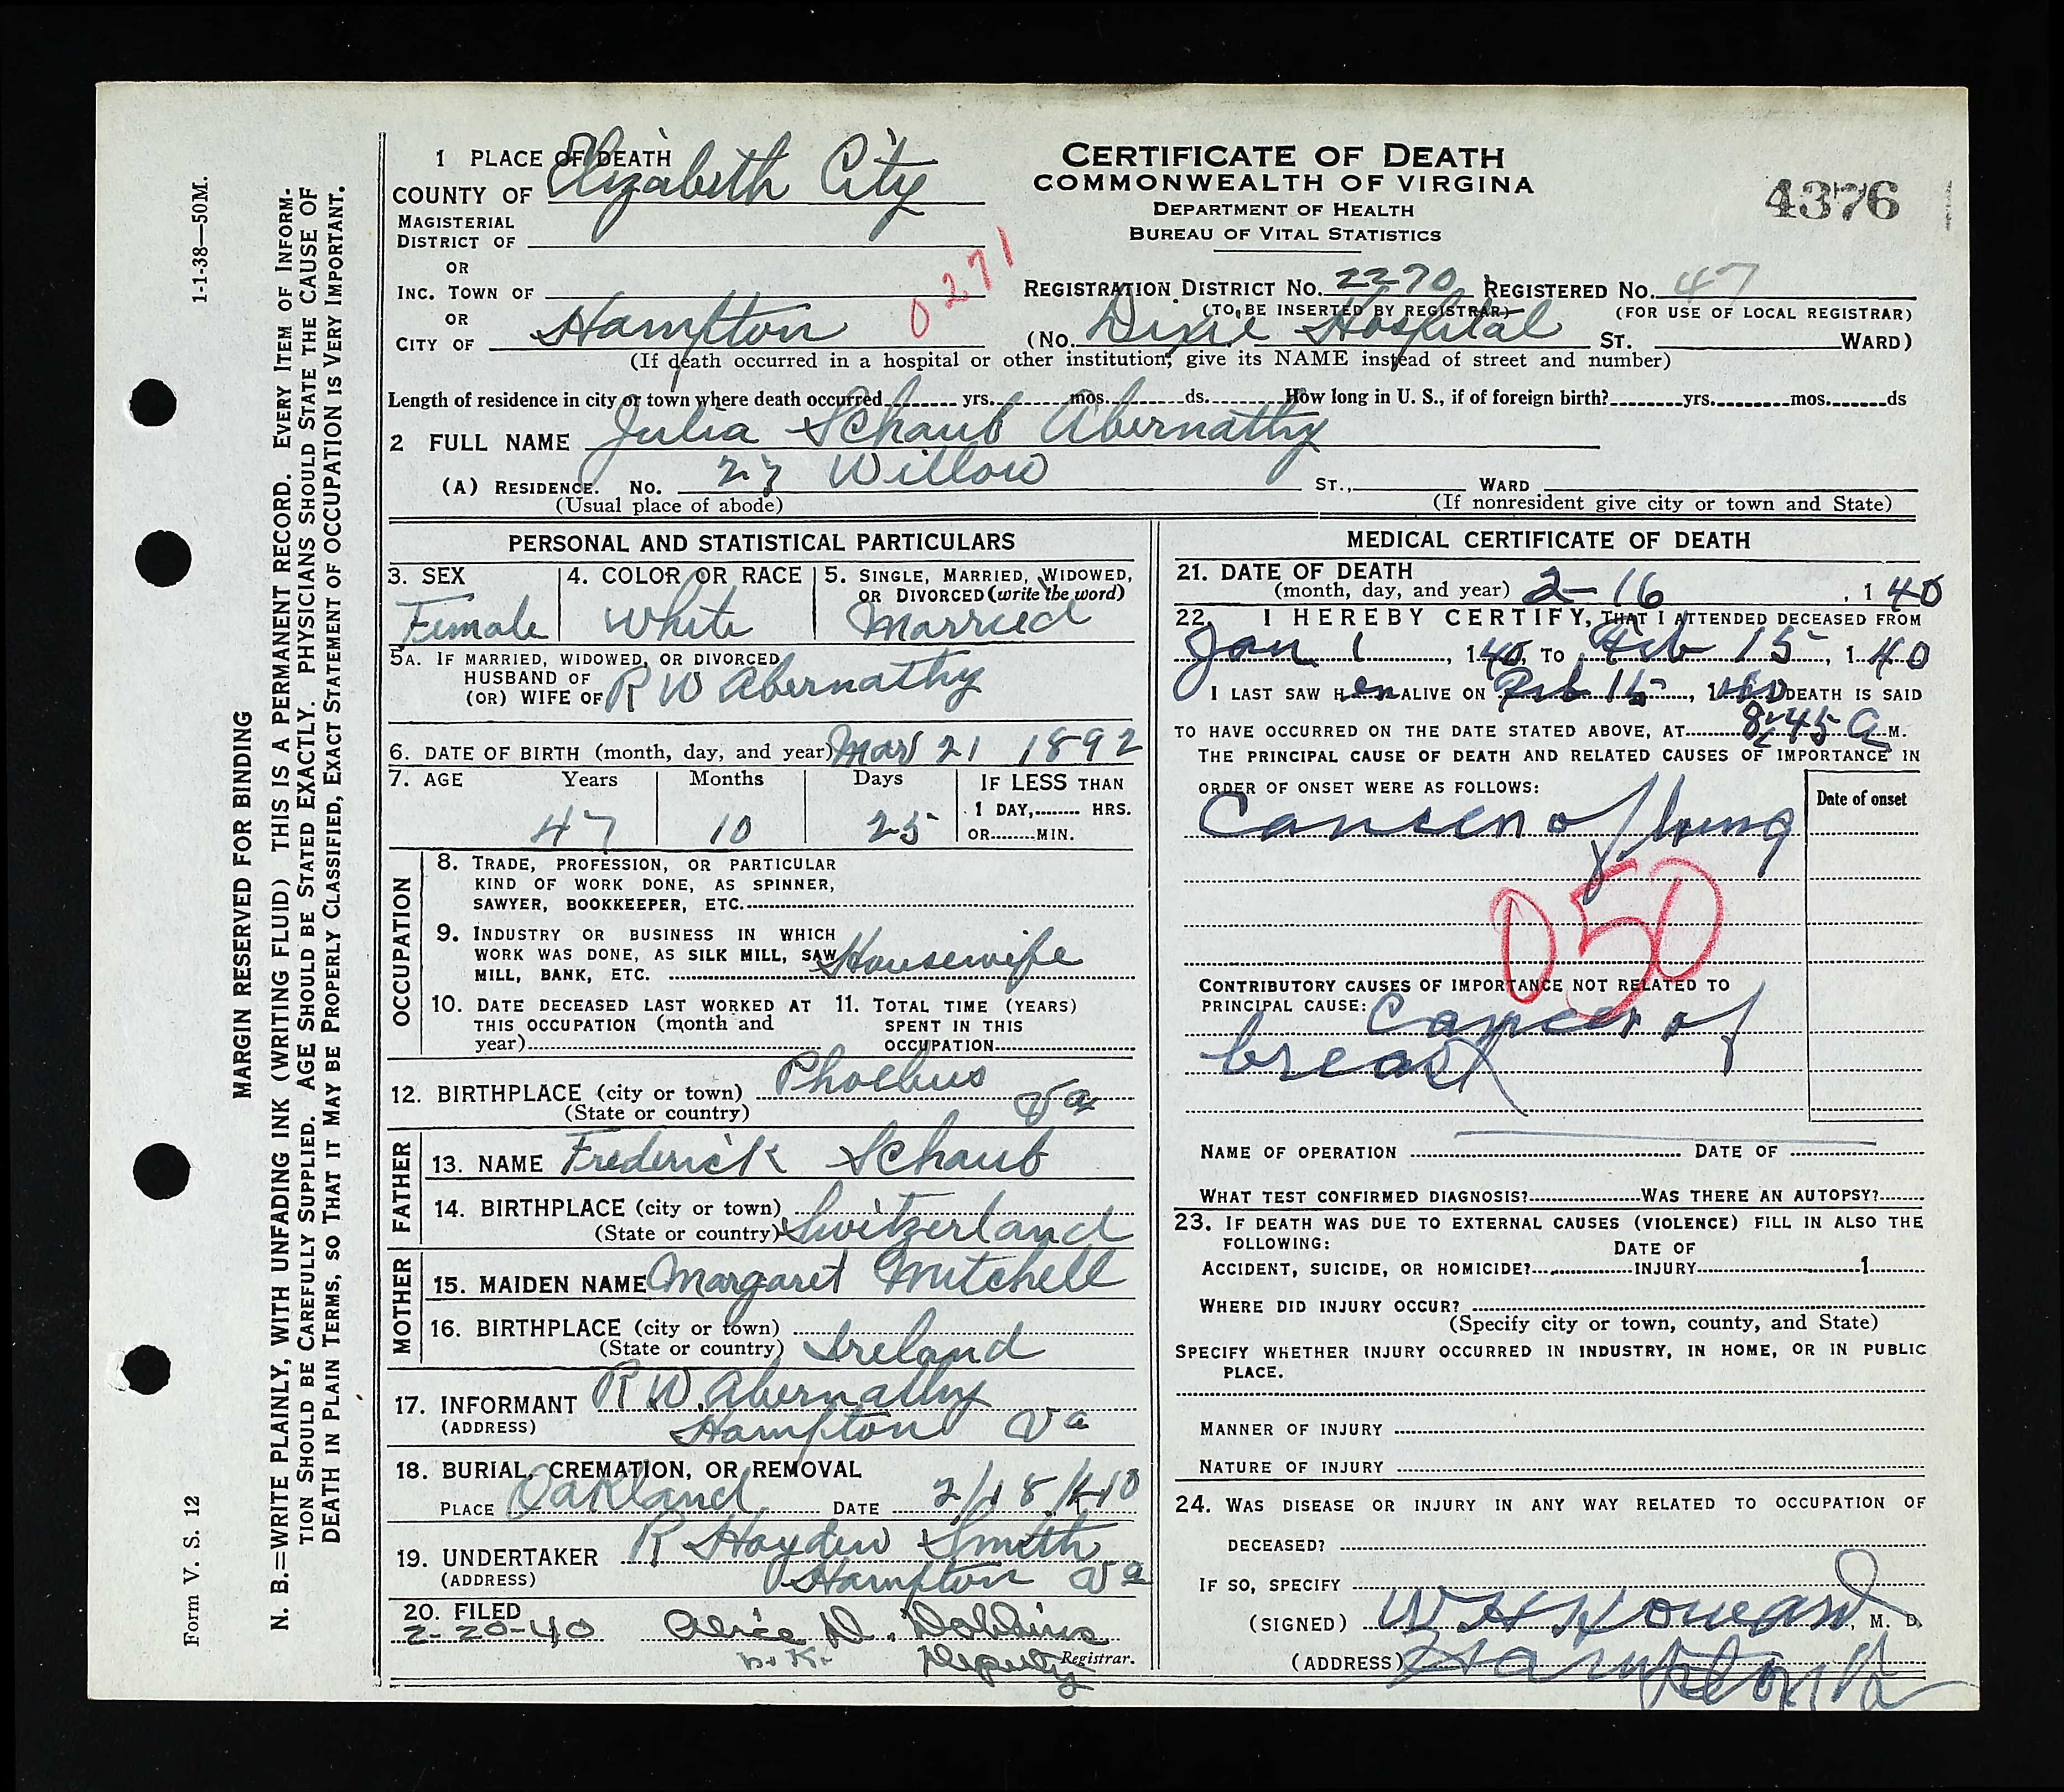 1-1-38—50M.
MARGIN RESERVED FOR BINDING
N. B.=WRITE PLAINLY, WITH UNFADING INK (WRITING FLUID) THIS IS A PERMANENT RECORD. EVERY ITEM OF INFORM.
TION SHOULD BE CAREFULLY SUPPLIED. AGE SHOULD BE STATED EXACTLY. PHYSICIANS SHOULD STATE THE CAUSE OF
DEATH IN PLAIN TERMS, SO THAT IT MAY BE PROPERLY CLASSIFIED, EXACT STATEMENT OF OCCUPATION IS VERY IMPORTANT.
Form V. S. 12
CERTIFICATE OF DEATH
COMMONWEALTH OF VIRGINA
DEPARTMENT OF HEALTH
BUREAU OF VITAL STATISTICS
4376
1 PLACE OF DEATH
COUNTY OF Elizabeth City
MAGISTERIAL
DISTRICT OF
OR
INC. TOWN OF
OR
CITY OF Hampton
0271
REGISTRATION DISTRICT NO. 2270 REGISTERED NO. 47
(TO BE INSERTED BY REGISTRAR) (FOR USE OF LOCAL REGISTRAR)
(NO. Dixie Hospital ST. WARD)
(If death occurred in a hospital or other institution, give its NAME instead of street and number)
Length of residence in city or town where death occurred yrs. mos. ds. How long in U. S., if of foreign birth? yrs. mos. ds
2 FULL NAME Julia Schaub Abernathy
(A) RESIDENCE. NO. 27 Willow ST., WARD
(Usual place of abode) (If nonresident give city or town and State)
PERSONAL AND STATISTICAL PARTICULARS
3. SEX 4. COLOR OR RACE 5. SINGLE, MARRIED, WIDOWED,
OR DIVORCED (write the word)
Female White Married
5A. IF MARRIED, WIDOWED, OR DIVORCED
HUSBAND OF
(OR) WIFE OF R W Abernathy
6. DATE OF BIRTH (month, day, and year) Mar 21 1892
7. AGE Years Months Days IF LESS THAN
1 DAY, HRS.
47 10 25 OR MIN.
OCCUPATION
8. TRADE, PROFESSION, OR PARTICULAR
KIND OF WORK DONE, AS SPINNER,
SAWYER, BOOKKEEPER, ETC.
9. INDUSTRY OR BUSINESS IN WHICH
WORK WAS DONE, AS SILK MILL, SAW
MILL, BANK, ETC. Housewife
10. DATE DECEASED LAST WORKED AT 11. TOTAL TIME (YEARS)
THIS OCCUPATION (month and SPENT IN THIS
year) OCCUPATION
12. BIRTHPLACE (city or town) Phoebus
(State or country) Va
FATHER
13. NAME Frederick Schaub
14. BIRTHPLACE (city or town)
(State or country) Switzerland
MOTHER
15. MAIDEN NAME Margaret Mitchell
16. BIRTHPLACE (city or town)
(State or country) Ireland
17. INFORMANT R W. Abernathy
(ADDRESS) Hampton Va
18. BURIAL, CREMATION, OR REMOVAL
PLACE Oakland DATE 2/18/40
19. UNDERTAKER R Hayden Smith
(ADDRESS) Hampton Va
20. FILED
2-20-40 Alice D. Dobbins
Deputy Registrar.
MEDICAL CERTIFICATE OF DEATH
21. DATE OF DEATH
(month, day, and year) 2-16, 1 40
22. I HEREBY CERTIFY, THAT I ATTENDED DECEASED FROM
Jan 1, 1 40, TO Feb 15, 1 40
I LAST SAW H er ALIVE ON Feb 15, 1 40 DEATH IS SAID
TO HAVE OCCURRED ON THE DATE STATED ABOVE, AT 8:45 A M.
THE PRINCIPAL CAUSE OF DEATH AND RELATED CAUSES OF IMPORTANCE IN
ORDER OF ONSET WERE AS FOLLOWS: Date of onset
Cancer of lung
050
CONTRIBUTORY CAUSES OF IMPORTANCE NOT RELATED TO
PRINCIPAL CAUSE: Cancer of
breast
NAME OF OPERATION DATE OF
WHAT TEST CONFIRMED DIAGNOSIS? WAS THERE AN AUTOPSY?
23. IF DEATH WAS DUE TO EXTERNAL CAUSES (VIOLENCE) FILL IN ALSO THE
FOLLOWING: DATE OF
ACCIDENT, SUICIDE, OR HOMICIDE? INJURY 1
WHERE DID INJURY OCCUR?
(Specify city or town, county, and State)
SPECIFY WHETHER INJURY OCCURRED IN INDUSTRY, IN HOME, OR IN PUBLIC
PLACE.
MANNER OF INJURY
NATURE OF INJURY
24. WAS DISEASE OR INJURY IN ANY WAY RELATED TO OCCUPATION OF
DECEASED?
IF SO, SPECIFY
(SIGNED) W H Howard, M. D.
(ADDRESS) Hampton Va